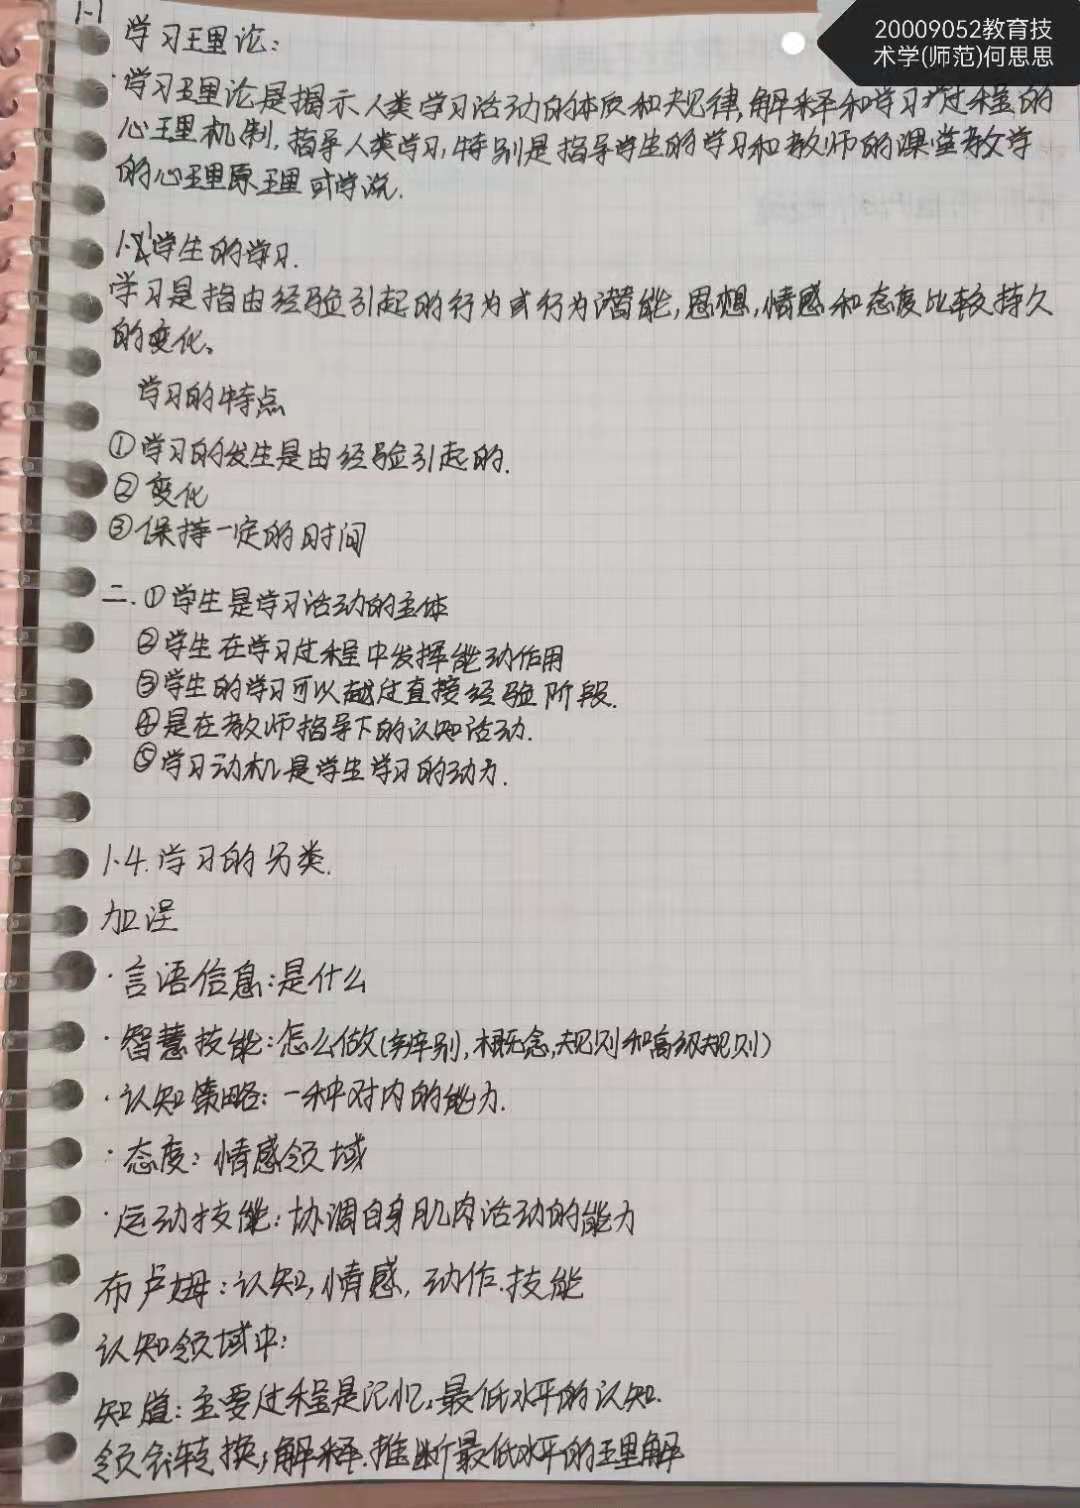 1-1
20009052教育技
术学(师范)何思思
学习理论:
·学习理论是揭示人类学习活动的本质和规律,解释和学习过程的
心理机制,指导人类学习,特别是指导学生的学习和教师的课堂教学
的心理原理或学说.
1.1学生的学习.
学习是指由经验引起的行为或行为潜能,思想,情感和态度比较持久
的变化。
学习的特点
①学习的发生是由经验引起的.
②变化
③保持一定的时间
二.①学生是学习活动的主体
②学生在学习过程中发挥能动作用
③学生的学习可以越过直接经验阶段.
④是在教师指导下的认知活动.
⑤学习动机是学生学习的动力.
1.4.学习的分类.
加涅
·言语信息:是什么
·智慧技能:怎么做(辨别,概念,规则和高级规则)
·认知策略:一种对内的能力.
·态度:情感领域
·运动技能:协调自身肌肉活动的能力
布卢姆:认知,情感,动作.技能
认知领域中:
知道:主要过程是记忆,最低水平的认知.
领会转换,解释.推断最低水平的理解